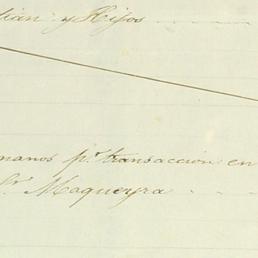 tian y Hijos
manos pr. transacción en
Sr. Maqueyra